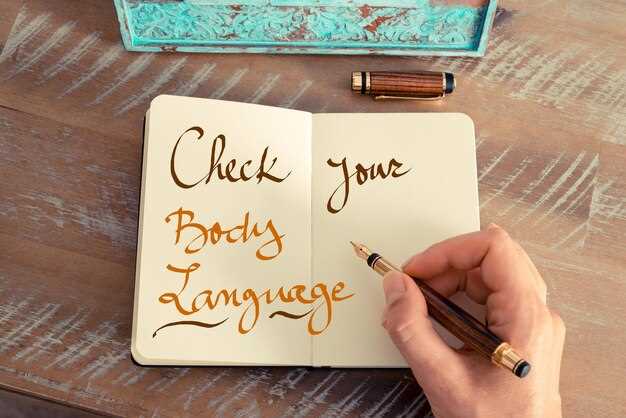 Check your
Body
Language